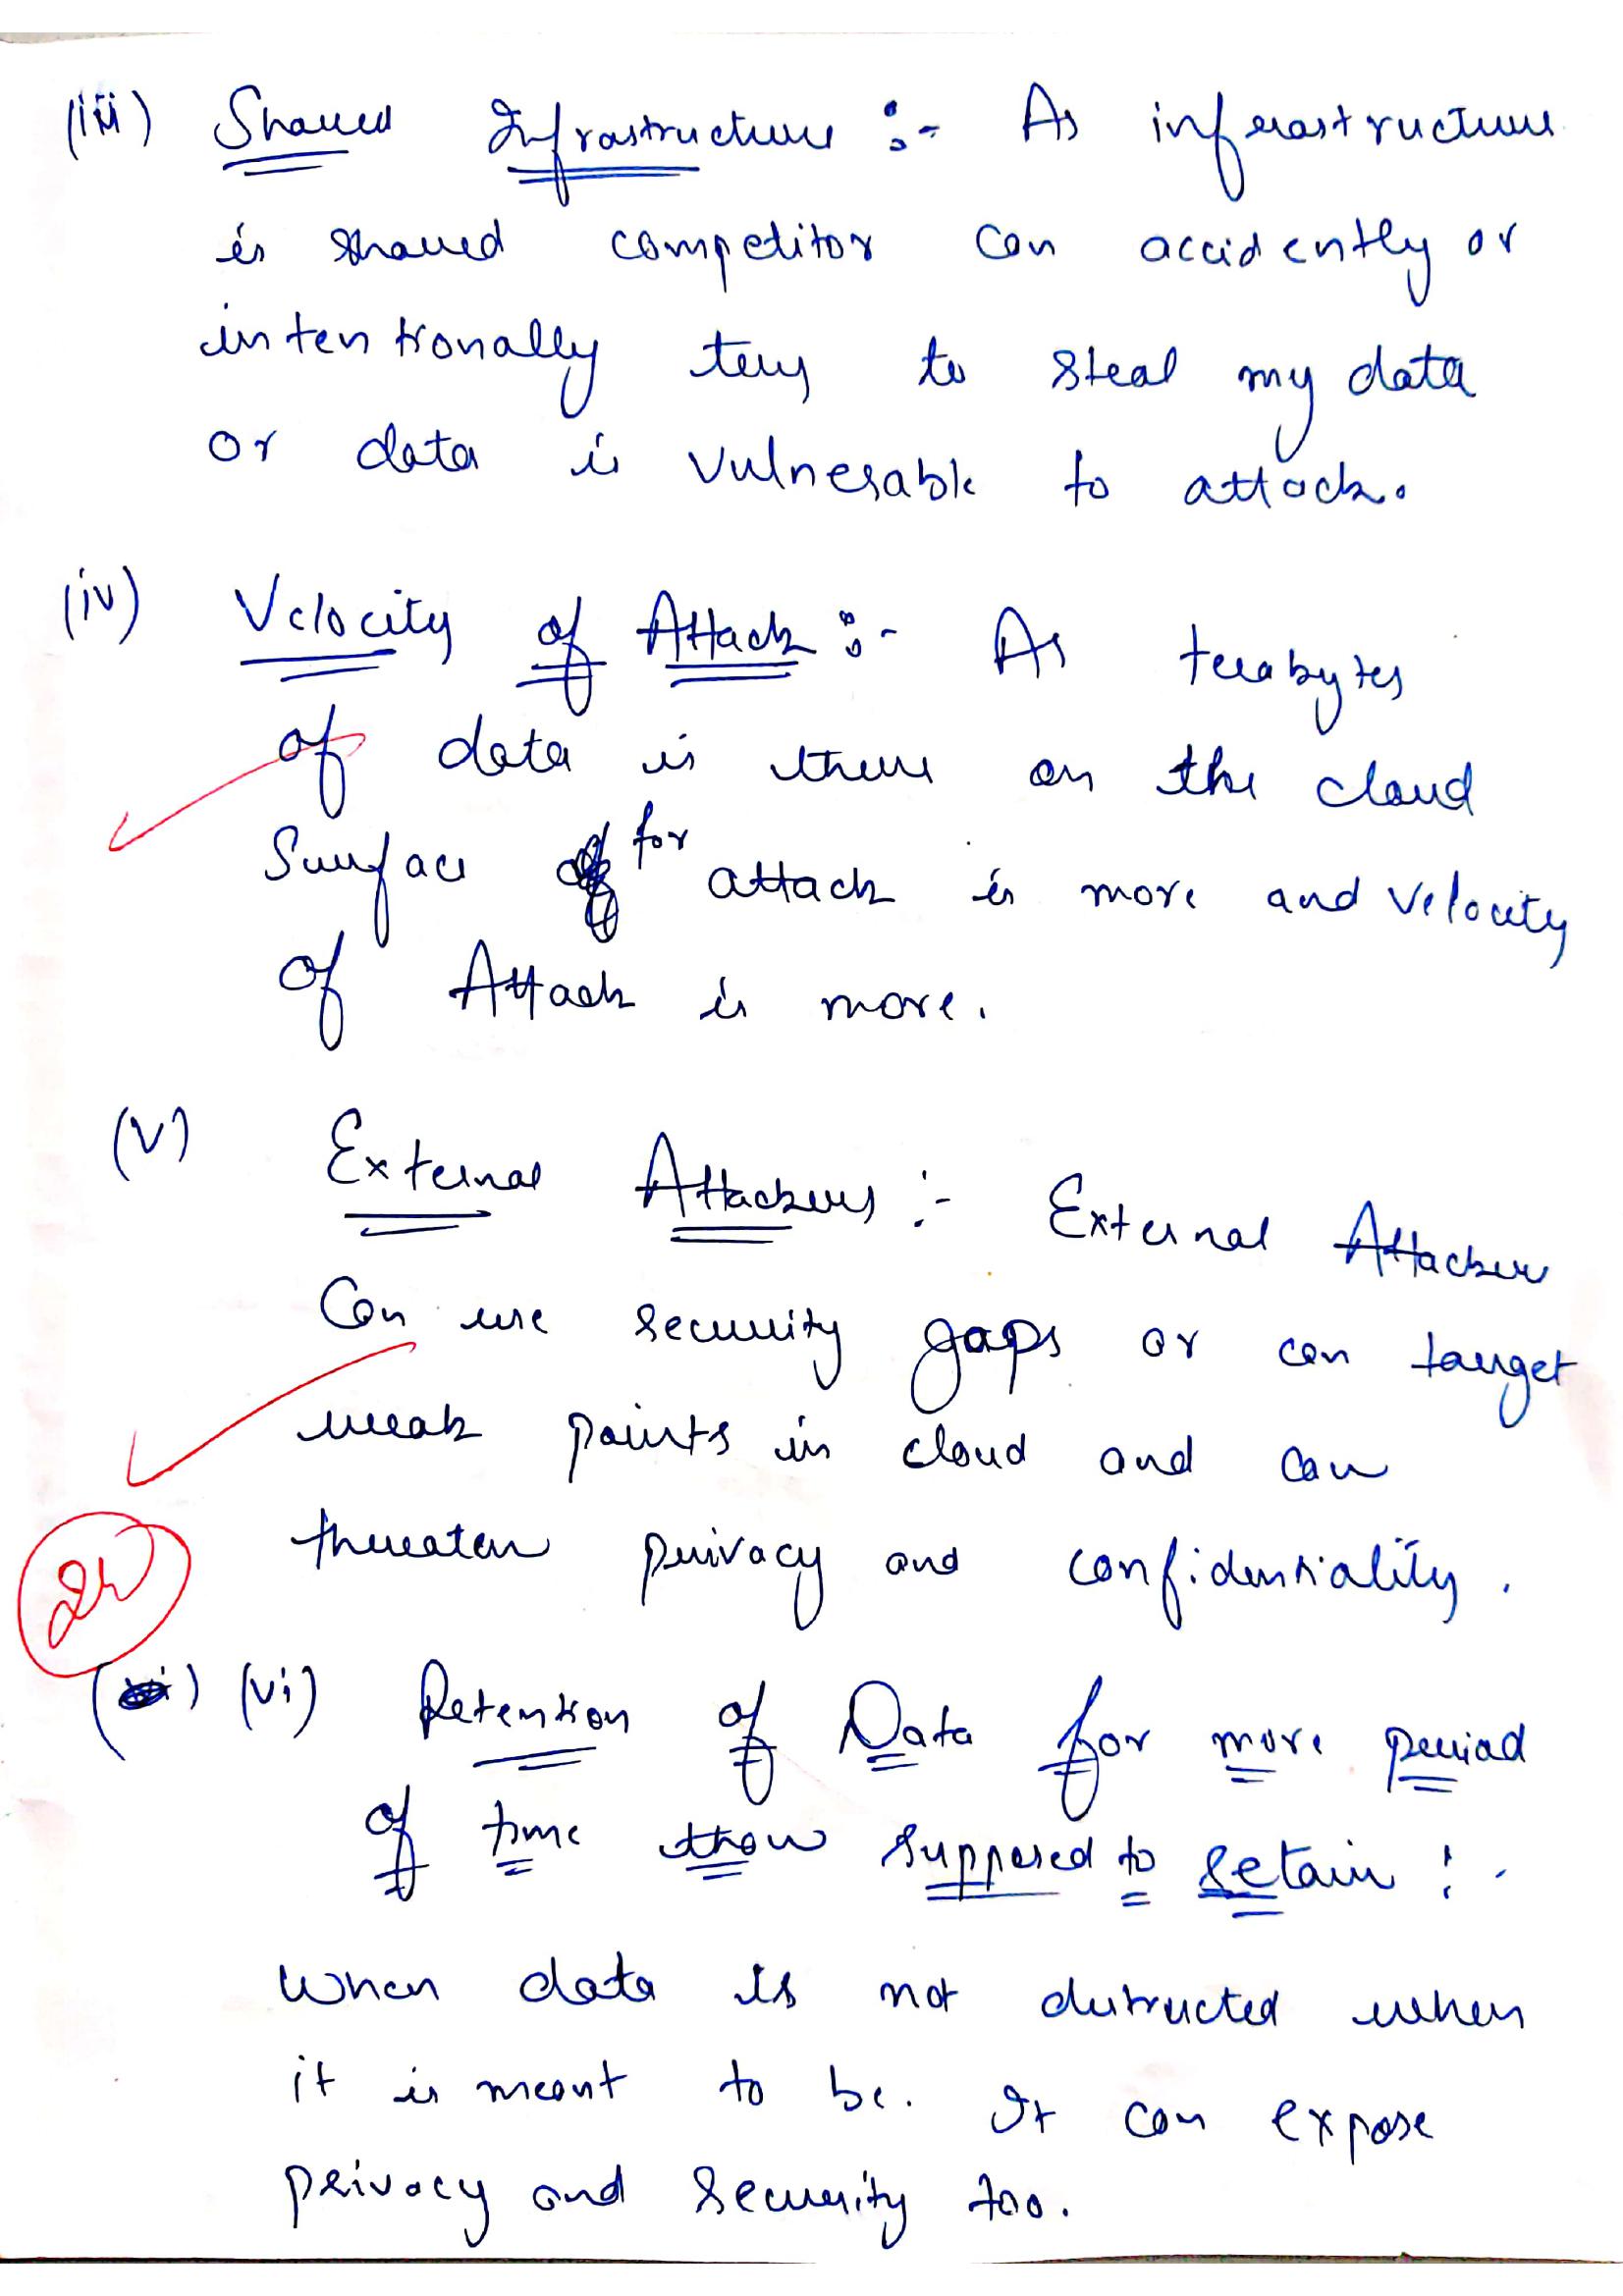 (iii) Shared Infrastructure :- As infrastructure
is shared competitor can accidently or
intentionally try to steal my data
or data is vulnerable to attack.
(iv) Velocity of Attack :- As terabytes
of data is there on the cloud
Surface for attack is more and velocity
of Attack is more.
(v) External Attackers :- External Attacker
Can use security gaps or can target
weak points in cloud and can
threaten privacy and confidentiality.
(vi) Retention of Data for more period
of time than supposed to retain :-
When data is not distructed when
it is meant to be. It can expose
privacy and security too.